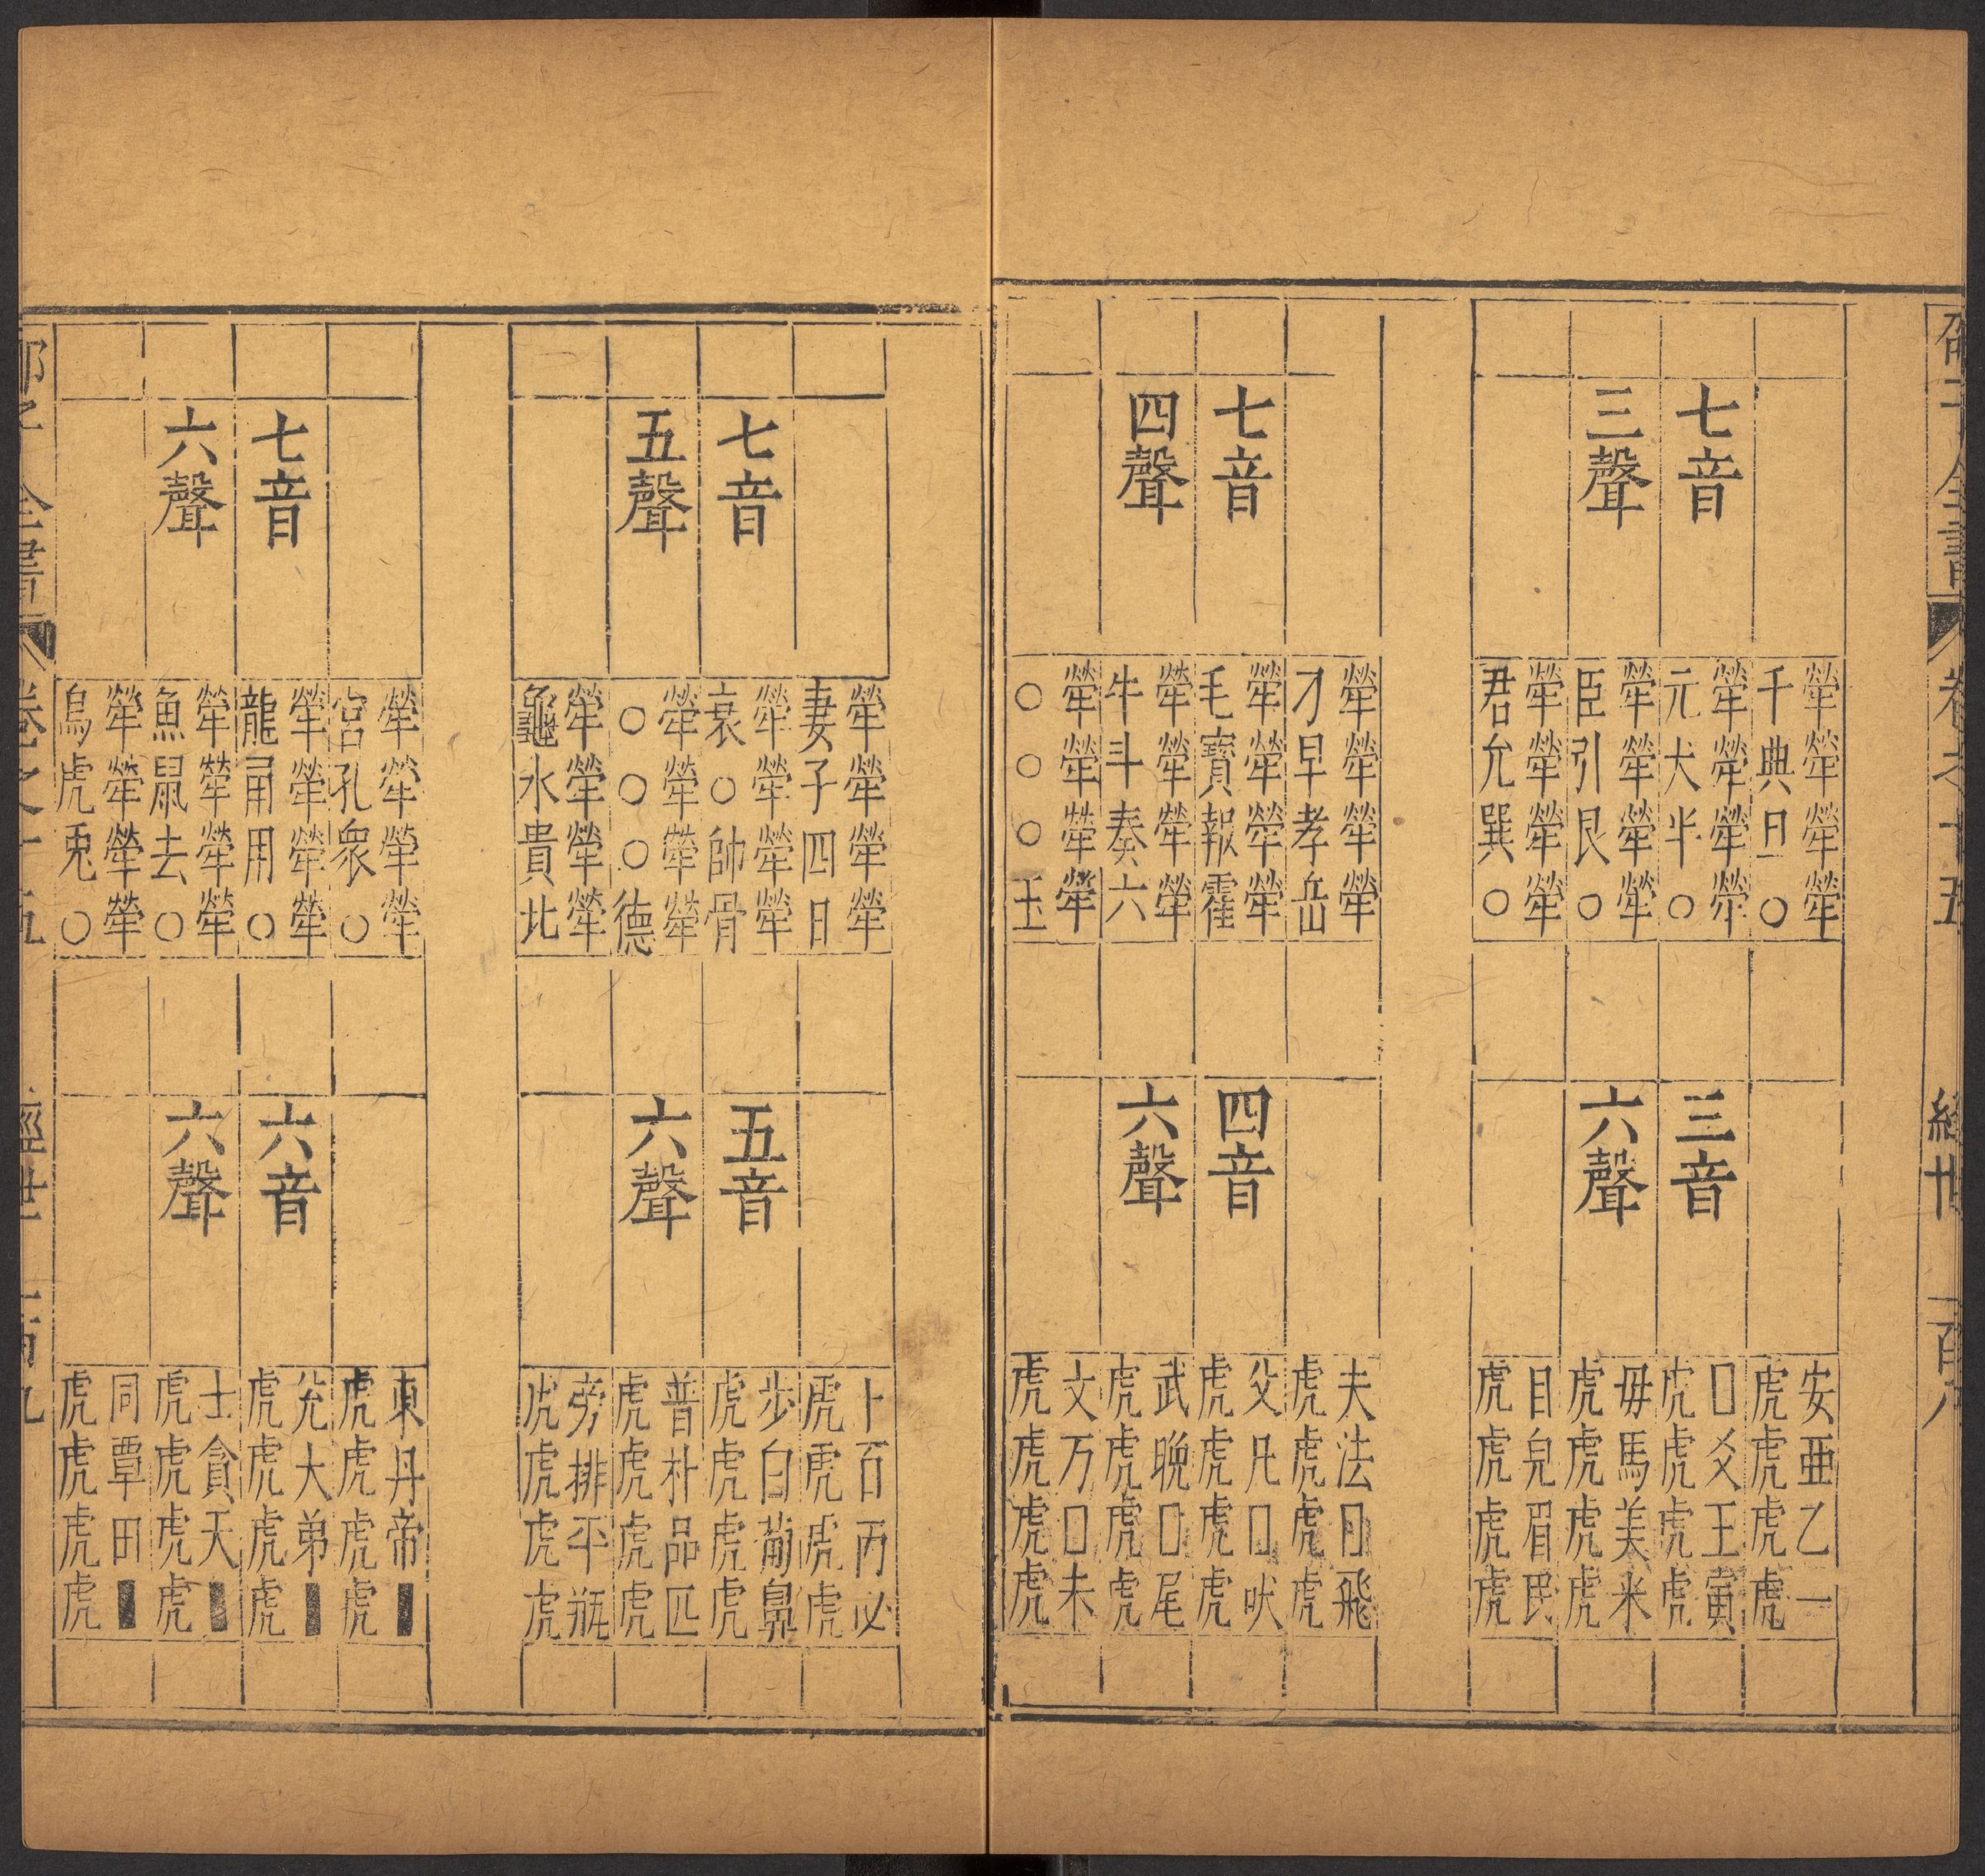 邵子全書 卷之十五 經世 一百八
七音
三聲
犖犖犖犖
千典旦○
犖犖犖犖
元犬半○
犖犖犖犖
臣引艮○
犖犖犖犖
君允巽○
三音
六聲
安亞乙一
虎虎虎虎
□爻王寅
虎虎虎虎
毋馬美米
虎虎虎虎
目皃眉民
虎虎虎虎
七音
四聲
犖犖犖犖
才早孝岳
犖犖犖犖
毛寶報霍
犖犖犖犖
牛斗奏六
犖犖犖犖
○○○玉
四音
六聲
夫法□飛
虎虎虎虎
父凡□吠
虎虎虎虎
武晚□尾
虎虎虎虎
文万□未
虎虎虎虎
七音
五聲
犖犖犖犖
妻子四日
犖犖犖犖
衰○帥骨
犖犖犖犖
○○○德
犖犖犖犖
龜水貴北
五音
六聲
卜百丙必
虎虎虎虎
步白葡鼻
虎虎虎虎
普朴品匹
虎虎虎虎
旁排平瓶
虎虎虎虎
七音
六聲
犖犖犖犖
宮孔衆○
犖犖犖犖
龍甬用○
犖犖犖犖
魚鼠去○
犖犖犖犖
烏虎兎○
六音
六聲
東丹帝■
虎虎虎虎
兊大弟■
虎虎虎虎
土貪天■
虎虎虎虎
同覃田■
虎虎虎虎
邵子全書 卷之十五 經世 一百九